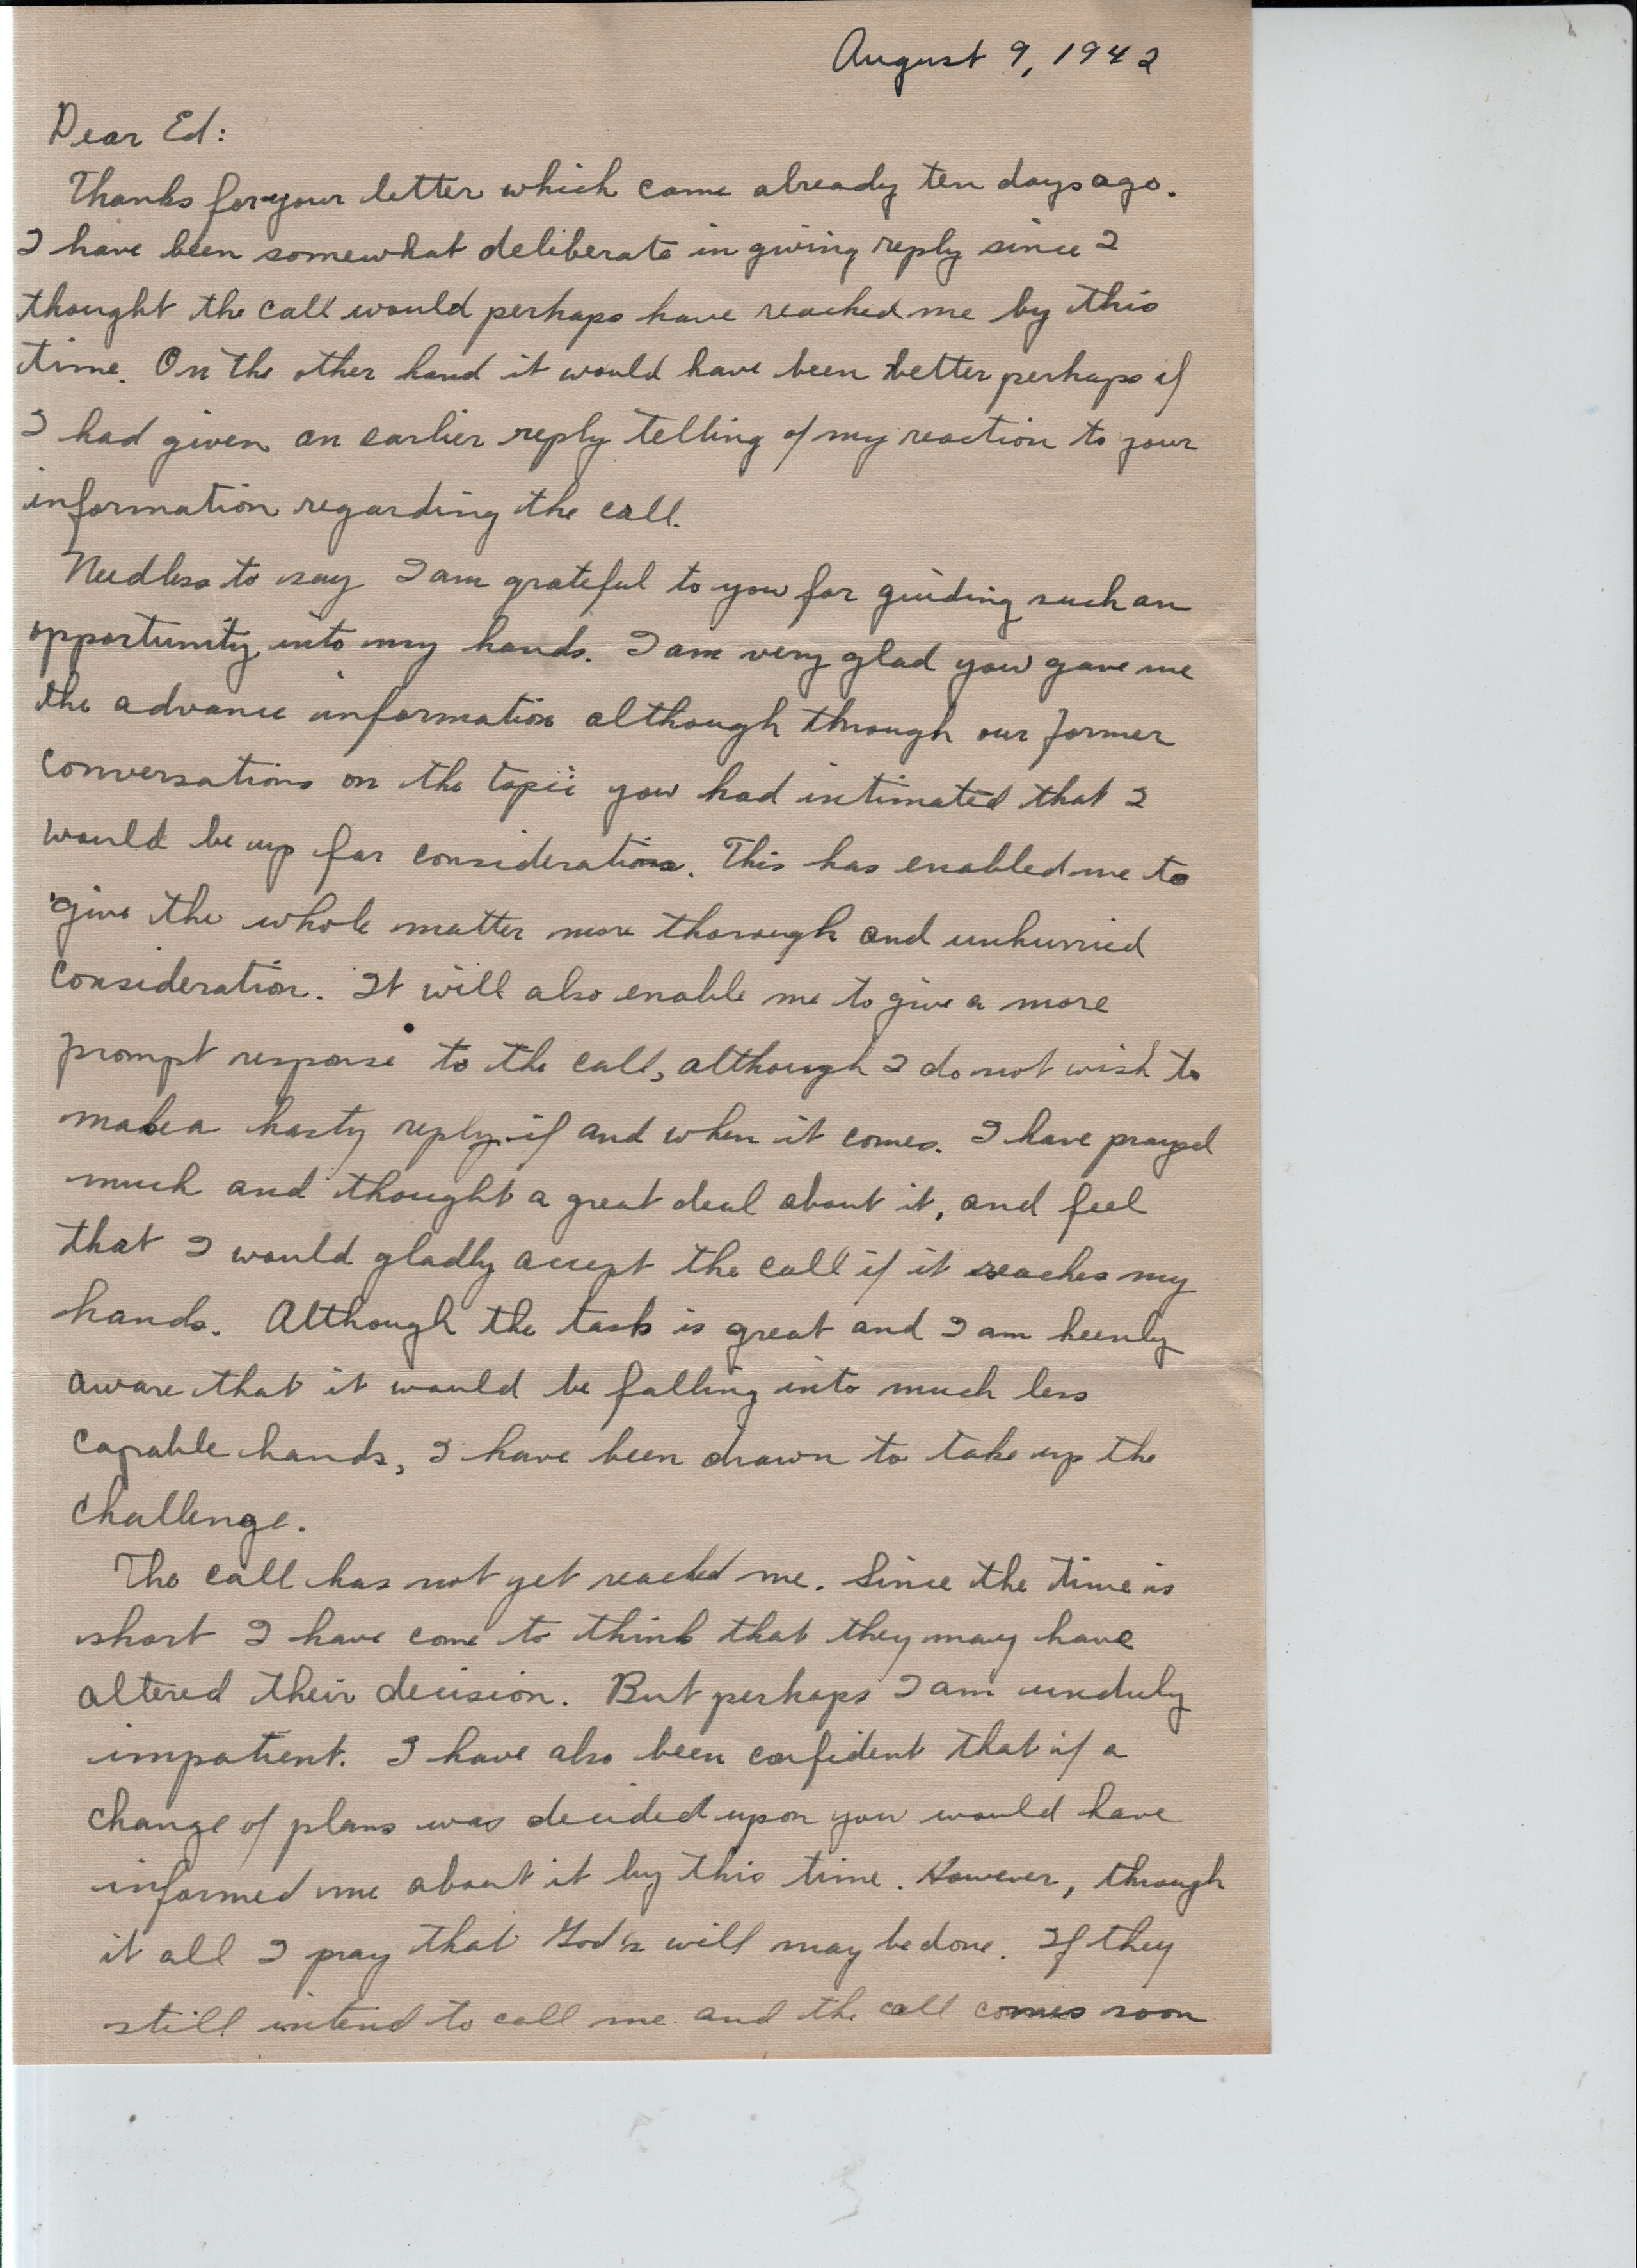 August 9, 1942
Dear Ed:
Thanks for your letter which came already ten days ago.
I have been somewhat deliberate in giving reply since I
thought the call would perhaps have reached me by this
time. On the other hand it would have been better perhaps if
I had given an earlier reply telling of my reaction to your
information regarding the call.
Needless to say I am grateful to you for guiding such an
opportunity into my hands. I am very glad you gave me
the advance information although through our former
conversations on the topic you had intimated that I
would be up for consideration. This has enabled me to
give the whole matter more thorough and unhurried
consideration. It will also enable me to give a more
prompt response to the call, although I do not wish to
make a hasty reply if and when it comes. I have prayed
much and thought a great deal about it, and feel
that I would gladly accept the call if it reaches my
hands. Although the task is great and I am keenly
aware that it would be falling into much less
capable hands, I have been drawn to take up the
challenge.
The call has not yet reached me. Since the time is
short I have come to think that they may have
altered their decision. But perhaps I am unduly
impatient. I have also been confident that if a
change of plans was decided upon you would have
informed me about it by this time. However, through
it all I pray that God's will may be done. If they
still intend to call me and the call comes soon